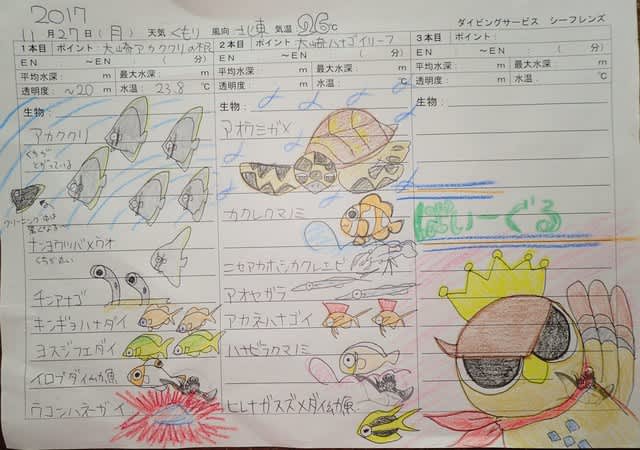 2017
11月27日(月) 天気 くもり 風向 気温 26℃ ダイビングサービス シーフレンズ
1本目 ポイント: 大崎アカククリの根
EN : ～EN : ( 分)
平均水深: m 最大水深: m
透明度: ～20 m 水温: 23.8 ℃
生物:
アカククリ
くちが
とがっている
クリーニング中は
黒くなる
ナンヨウツバメウオ
くちが丸い
チンアナゴ
キンギョハナダイ
ヨスジフエダイ
イロブダイ幼魚
ウコンハネーガイ
2本目 ポイント: 大崎ハナゴイリーフ
EN : ～EN : ( 分)
平均水深: m 最大水深: m
透明度: m 水温: ℃
生物:
アオウミガメ
カクレクマノミ
ニセアカホシカクレエビ
アオヤガラ
アカネハナゴイ
ハナビラクマノミ
ヒレナガスズメダイ幼魚
3本目 ポイント:
EN : ～EN : ( 分)
平均水深: m 最大水深: m
透明度: m 水温: ℃
生物:
ぱいーぐる